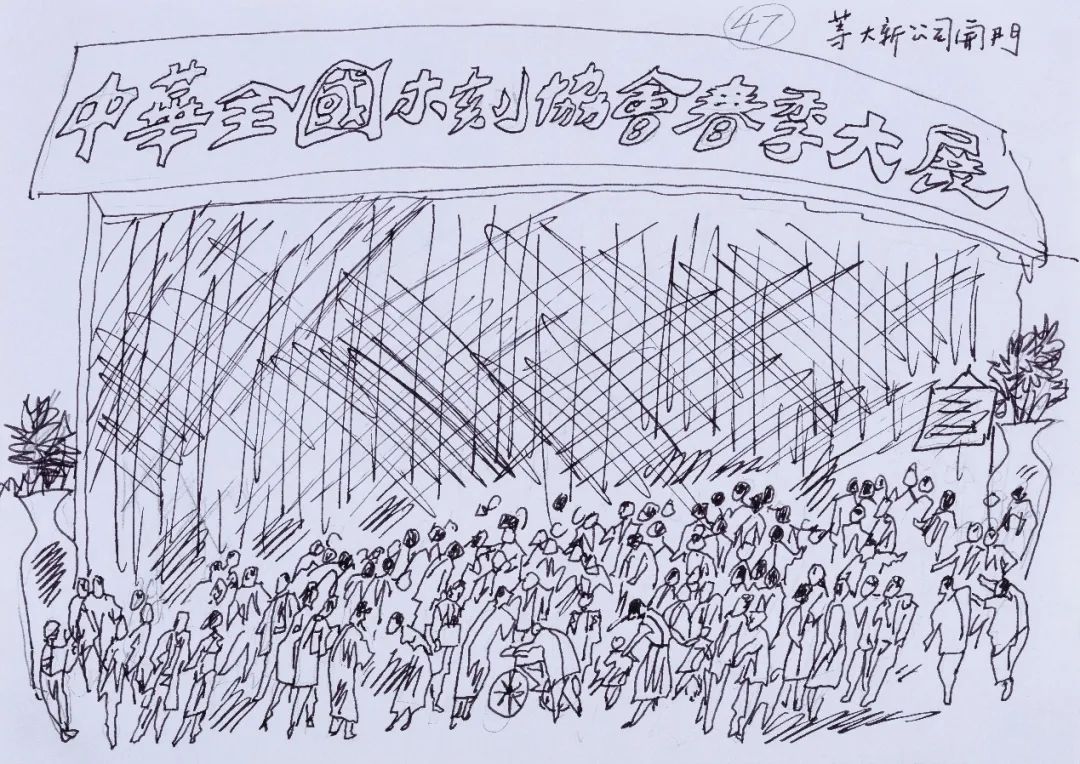 47
等大新公司開門
中華全國木刻協會春季大展